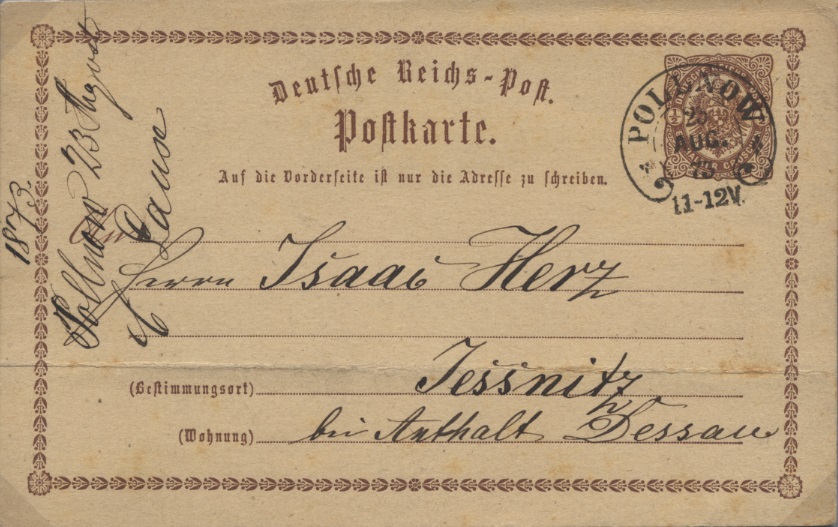 Deutsche Reichs-Post.
Postkarte.
Auf die Vorderseite ist nur die Adresse zu schreiben.
POLLNOW
25
AUG.
73
11-12V.
1873
Pollnow 23 August
An
Herrn Isaac Herz
(Bestimmungsort) Jessnitz
(Wohnung) bei Anthalt Dessau